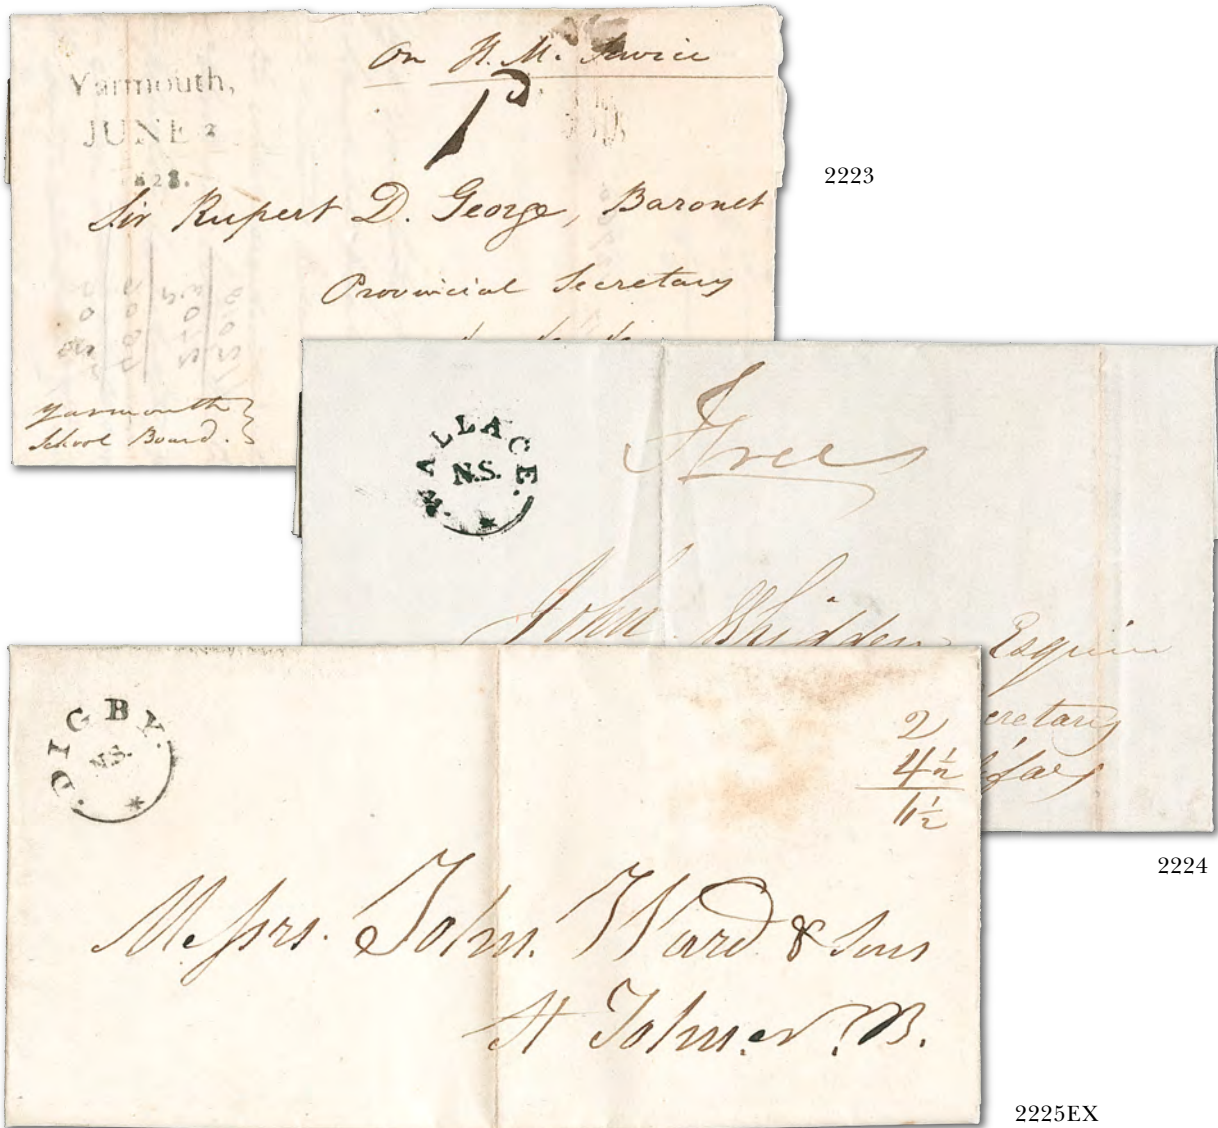 On H. M. Service
Yarmouth,
JUNE 2
1828.
Sir Rupert D. George, Baronet
Provincial Secretary
Yarmouth
School Board.
2223
WALLACE.
N.S.
Free
John Whidden Esquire
2224
DIGBY.
N.S.
2
4½
Messrs. John Ward & Sons
St John. N. B.
2225EX